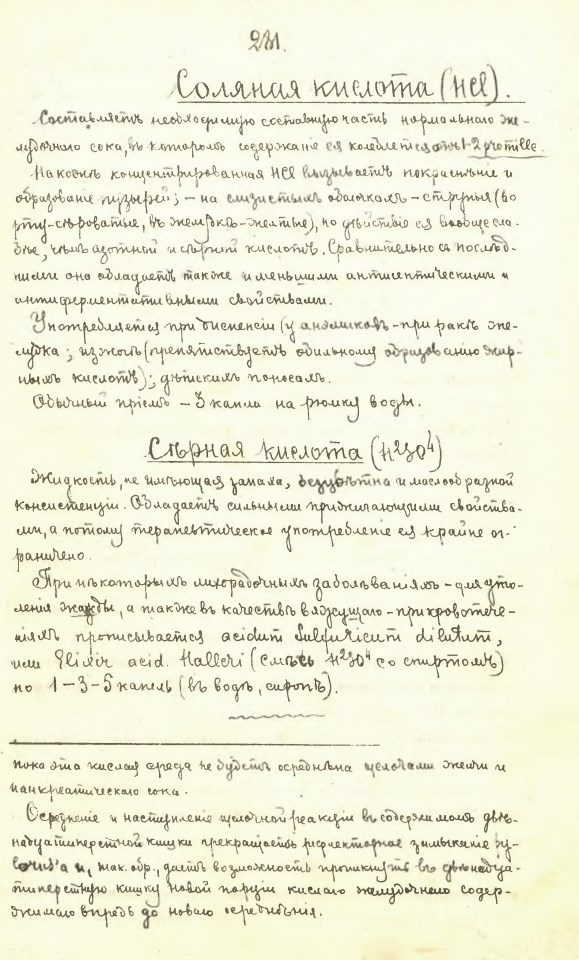 231.
Соляная кислота (HCl).
Составляетъ необходимую составную часть нормальнаго же-
лудочнаго сока, въ которомъ содержаніе ея колеблется отъ 1-2 promille.
На кожѣ концентрированная HCl вызываетъ покраснѣніе и
образованіе пузырей; – на слизистыхъ оболочкахъ – струпья (во
рту-сѣроватые, въ желудкѣ-желтые), но дѣйствіе ея вообще сла-
бѣе, чѣмъ азотной и сѣрной кислотъ. Сравнительно съ послѣд-
ними она обладаетъ также и меньшими антисептическими и
антиферментативными свойствами.
Употребляется при диспепсіи (у англиковъ – при ракѣ же-
лудка; изжогѣ (препятствуетъ обильному образованію жир-
ныхъ кислотъ); дѣтскихъ поносахъ.
Обычный пріемъ – 3 капли на рюмку воды.
Сѣрная кислота (H²SO⁴)
Жидкость, не имѣющая запаха, безцвѣтна и маслообразной
консистенціи. Обладаетъ сильными прижигающими свойства-
ми, а потому терапевтическое употребленіе ея крайне ог-
раничено.
При нѣкоторыхъ лихорадочныхъ заболѣваніяхъ – для уто-
ленія жажды, а также въ качествѣ вяжущаго – при кровотече-
ніяхъ прописывается acidum Sulfuricum dilutum,
или Elixir acid. Halleri (смѣсь H²SO⁴ со спиртомъ)
по 1 – 3 – 5 капель (въ водѣ, сиропѣ).
пока эта кислая среда не будетъ осреднена щелочами желчи и
панкреатическаго сока.
Осредненіе и наступленіе щелочной реакціи въ содержимомъ двѣ-
надцатиперстной кишки прекращаетъ рефлекторное замыканіе py-
lorus'a и, так. обр., даетъ возможность проникнуть въ двѣнадца-
типерстную кишку новой порціи кислаго желудочнаго содер-
жимаго впредь до новаго осредненія.